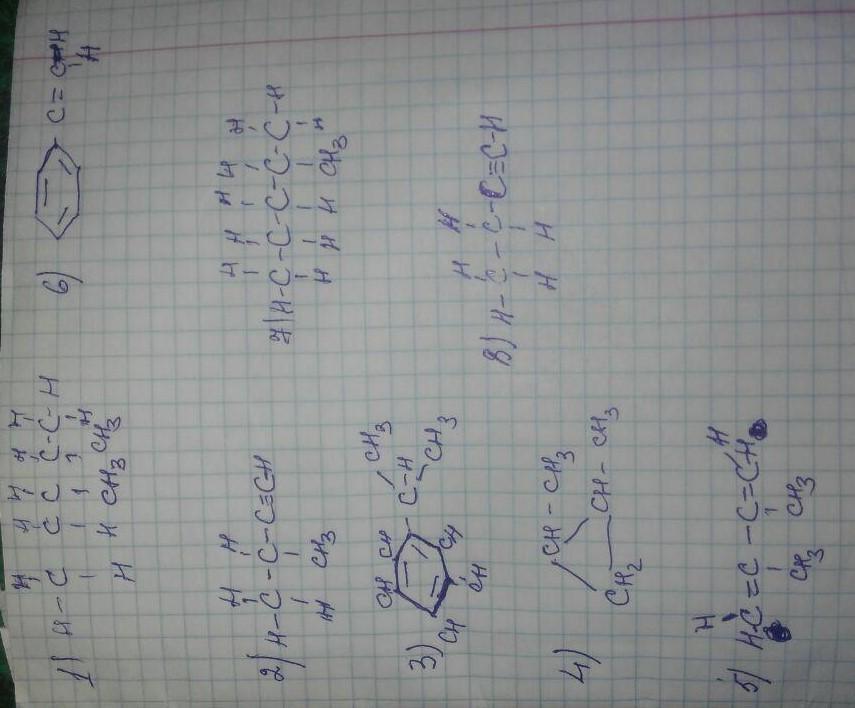 1) H-C C C C-C-H
H H H H H
H H CH3 CH3 H
2) H-C-C-C≡CH
H H
H CH3
3) CH CH C-H CH3
CH CH CH CH3
4) CH-CH3
CH2 CH-CH3
5) H-C=C-C=CH
H H
CH3 CH3
6) C=C-H
H
7) H-C-C-C-C-C-H
H H H H H
H H H CH3 H
8) H-C-C-C≡C-H
H H
H H